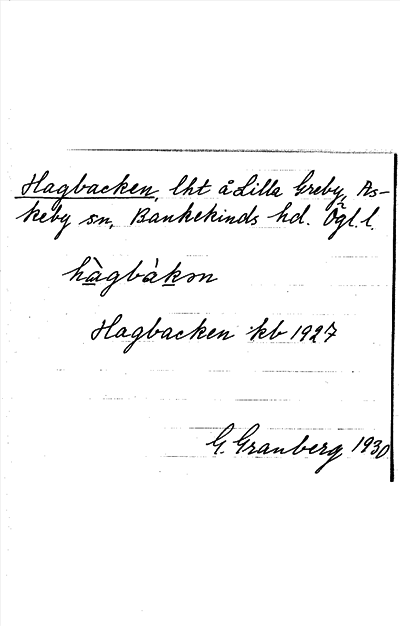 Hagbacken, lht å Lilla Greby, As-
keby sn, Bankekinds hd. Ögl. l.
hàgbàkən
Hagbacken kb 1927
G. Granberg 1930